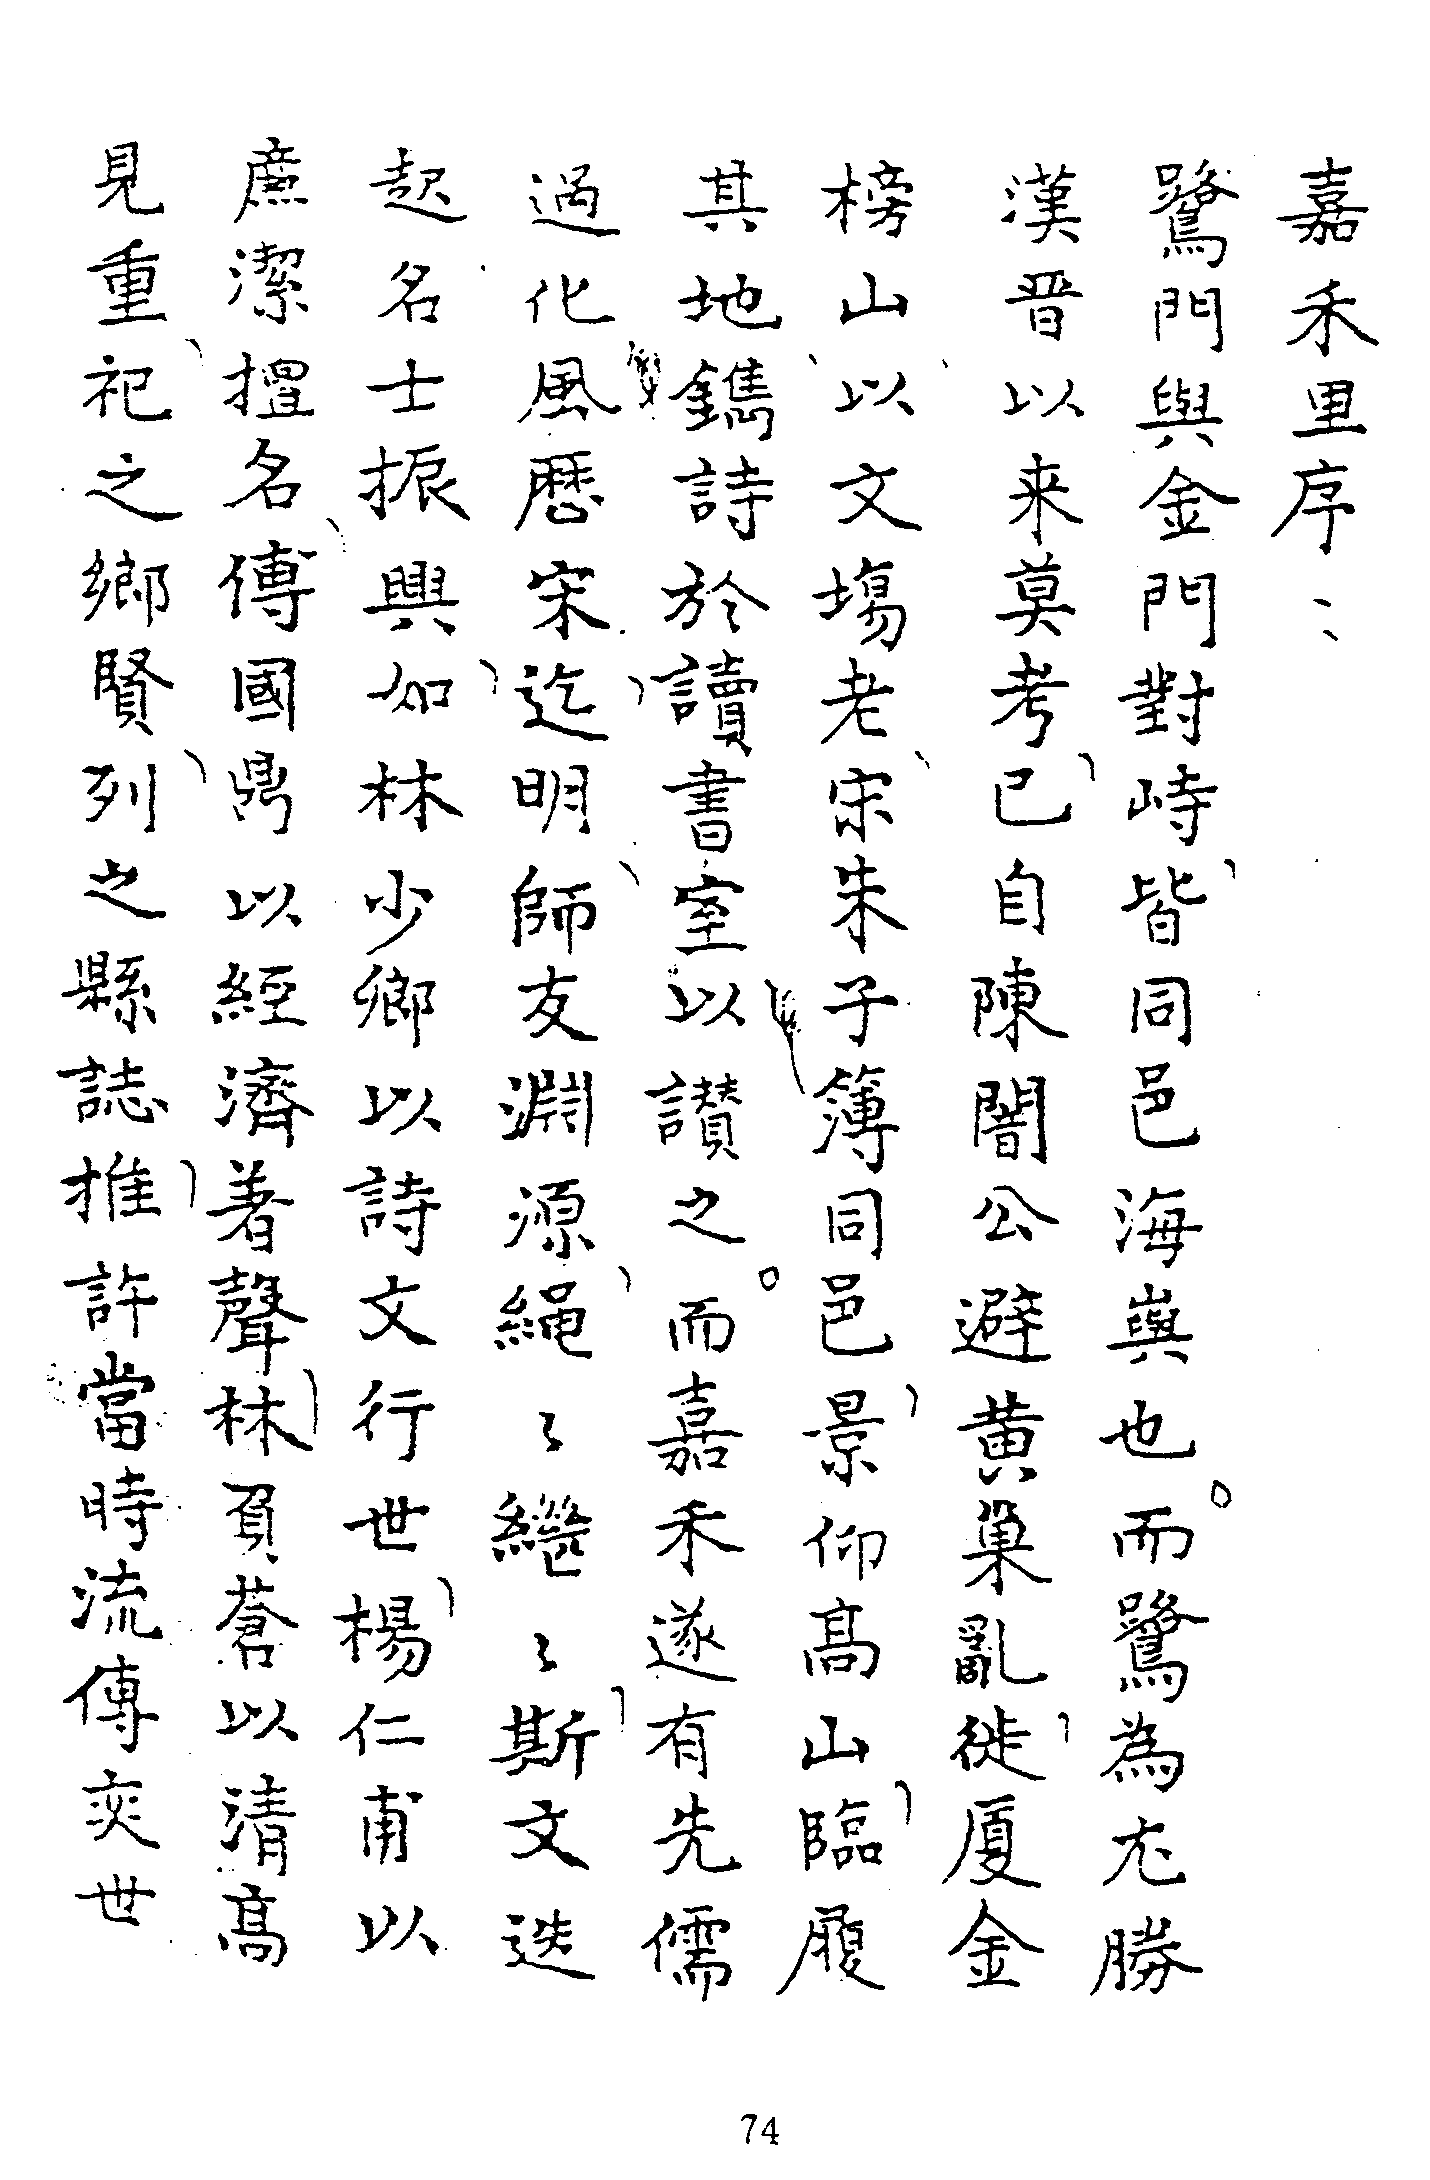 嘉禾里序
鷺門與金門對峙皆同邑海嶼也。而鷺為尤勝
漢晉以来莫考已自陳闇公避黄巢亂徙厦金
榜山以文塲老宋朱子簿同邑景仰高山臨履
其地鐫詩於讀書室以讃之。而嘉禾遂有先儒
過化風曆宋迄明師友淵源繩〻繼〻斯文迭
起名士振興如林少鄉以詩文行世楊仁甫以
廉潔擅名傅國鼎以經濟著聲林負蒼以清高
見重祀之鄉賢列之縣誌推許當時流傳奕世
74